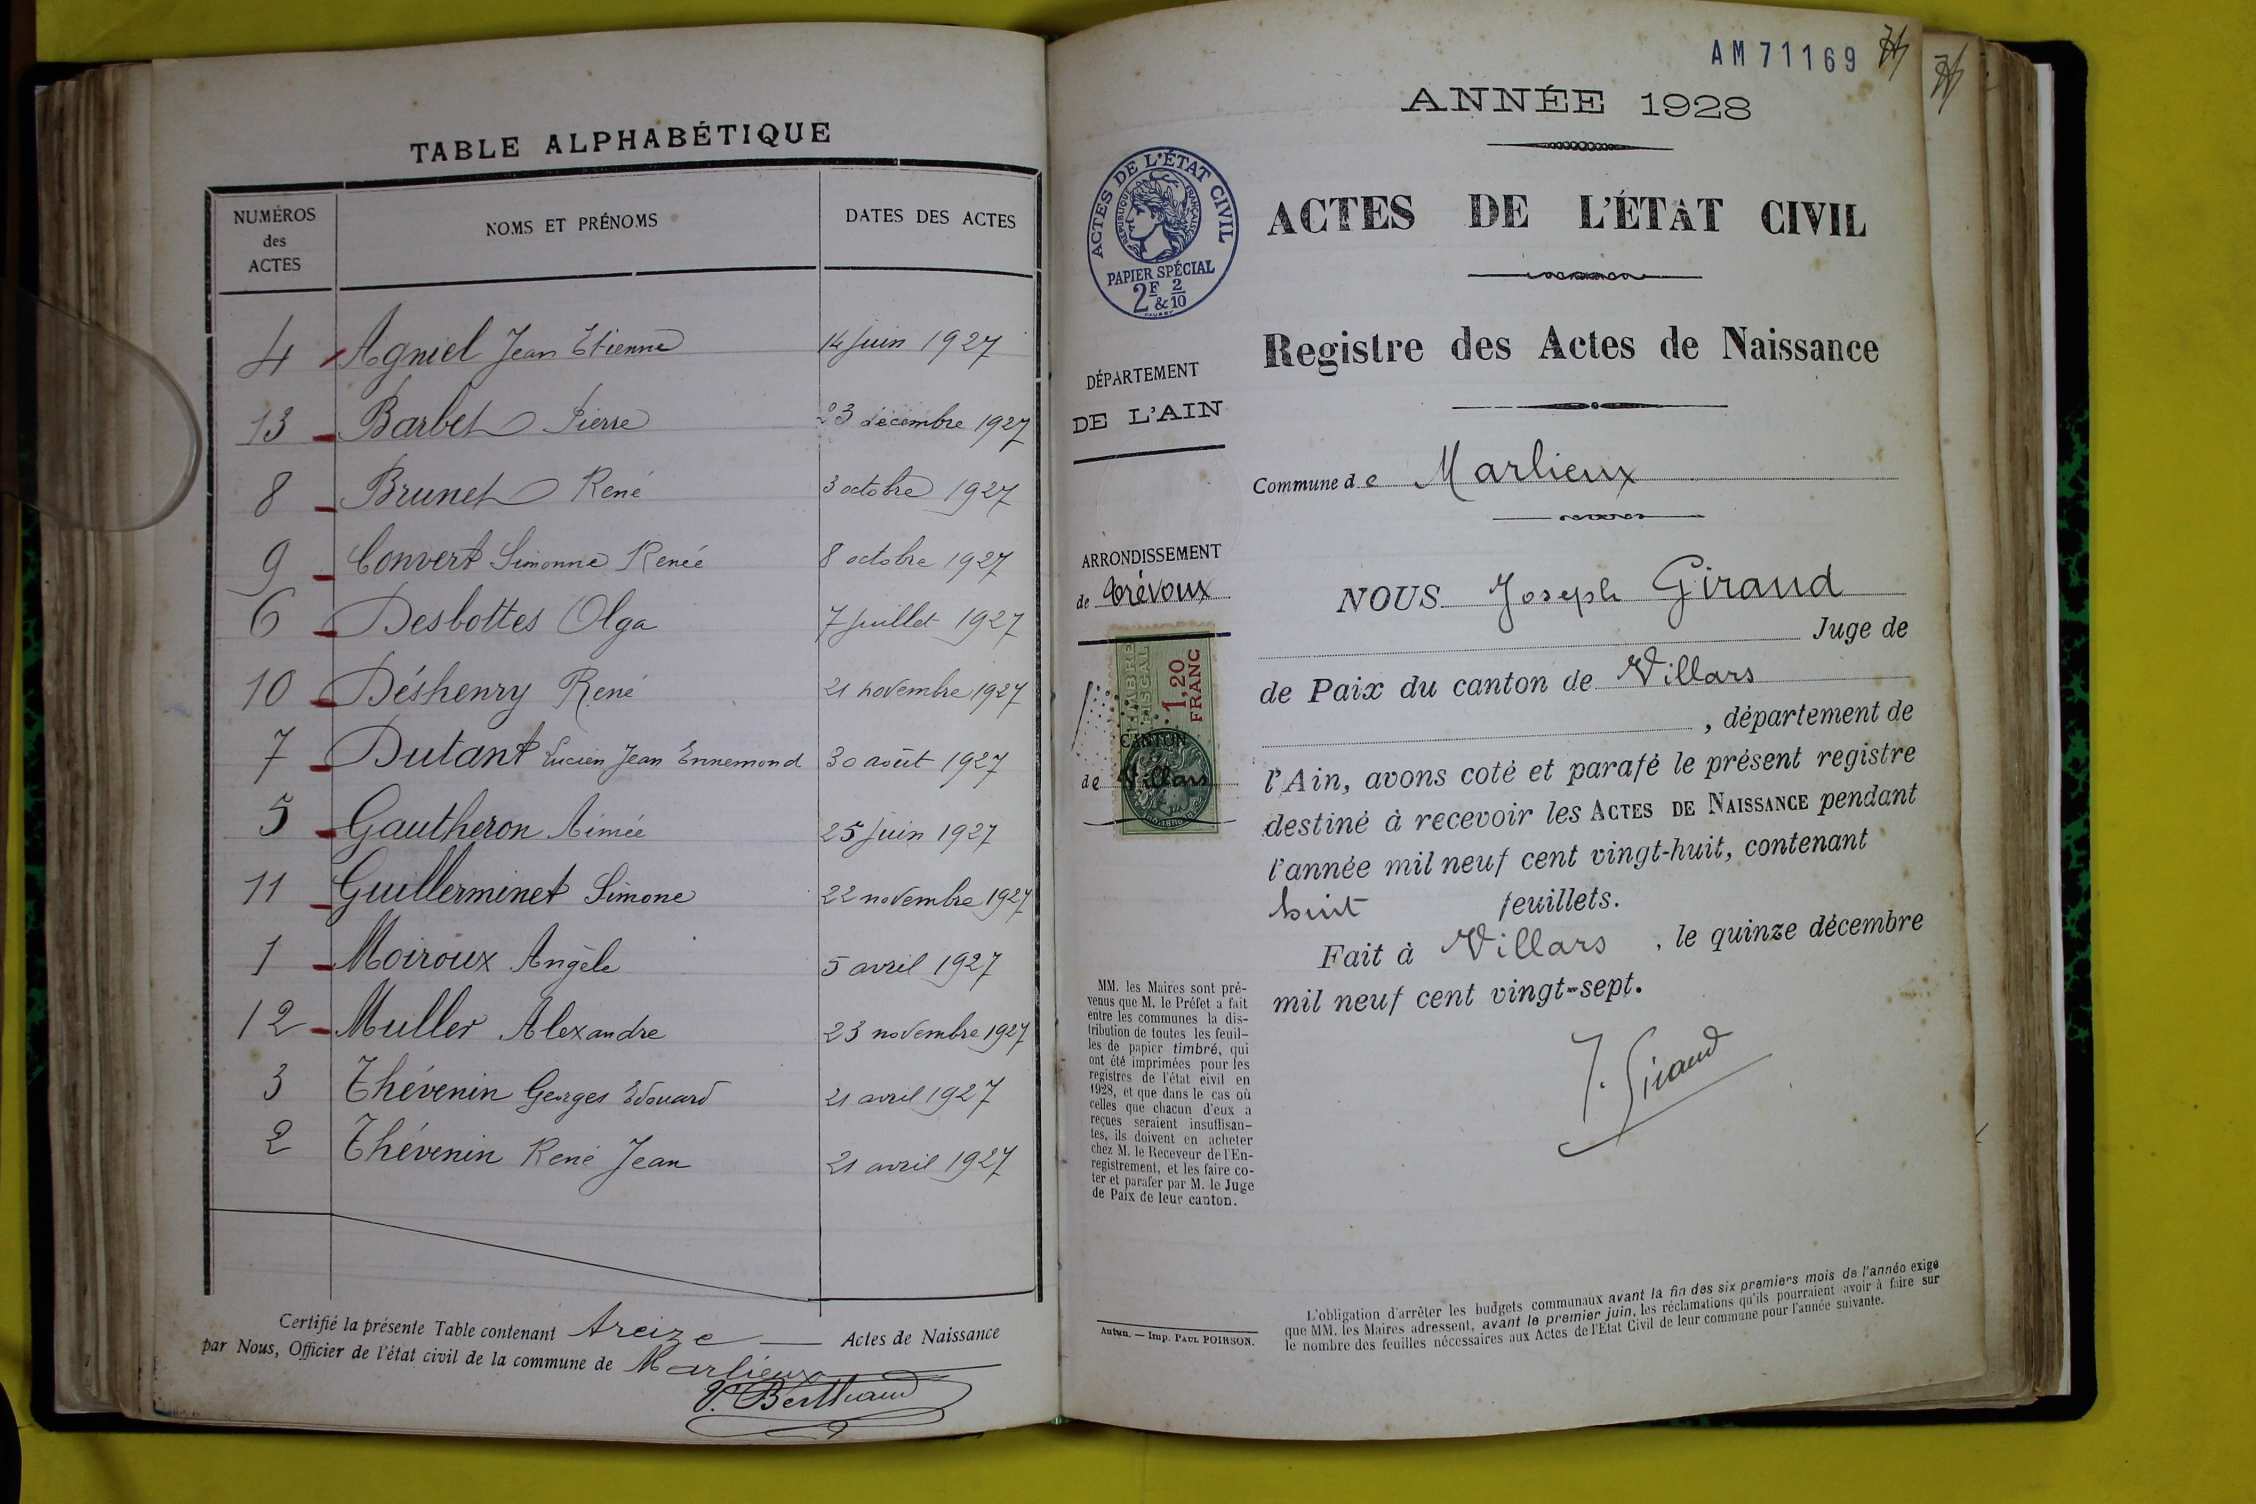 TABLE ALPHABÉTIQUE
NUMÉROS des ACTES NOMS ET PRÉNOMS DATES DES ACTES
4 Agniel Jean Etienne 14 juin 1927
13 Barbet Pierre 23 décembre 1927
8 Brunet René 3 octobre 1927
9 Convert Simonne Renée 8 octobre 1927
6 Desbottes Olga 7 juillet 1927
10 Déshenry René 21 novembre 1927
7 Dutant Lucien Jean Ennemond 30 août 1927
5 Gautheron Aimée 25 juin 1927
11 Guillerminet Simone 22 novembre 1927
1 Moiroux Angèle 5 avril 1927
12 Muller Alexandre 23 novembre 1927
3 Thévenin Georges Edouard 21 avril 1927
2 Thévenin René Jean 21 avril 1927
Certifié la présente Table contenant treize Actes de Naissance
par Nous, Officier de l'état civil de la commune de Marlieux
AM 71169
ANNÉE 1928
ACTES DE L'ÉTAT CIVIL
RÉPUBLIQUE FRANÇAISE
PAPIER SPÉCIAL
2F & 2/10
ACTES DE L'ÉTAT CIVIL
Registre des Actes de Naissance
DÉPARTEMENT
DE L'AIN
Commune de Marlieux
ARRONDISSEMENT
de Trévoux
TIMBRE
FISCAL
1,20
FRANC
CANTON
de Villars
NOUS Joseph Giraud
Juge de
de Paix du canton de Villars
, département de
l'Ain, avons coté et parafé le présent registre
destiné à recevoir les ACTES DE NAISSANCE pendant
l'année mil neuf cent vingt-huit, contenant
huit feuillets.
Fait à Villars , le quinze décembre
mil neuf cent vingt-sept.
J. Giraud
MM. les Maires sont pré-
venus que M. le Préfet a fait
entre les communes la dis-
tribution de toutes les feuil-
les de papier timbré, qui
ont été imprimées pour les
registres de l'état civil en
1928, et que dans le cas où
celles que chacun d'eux a
reçues seraient insuffisan-
tes, ils doivent en acheter
chez M. le Receveur de l'En-
registrement, et les faire co-
ter et parafer par M. le Juge
de Paix de leur canton.
Autun. — Imp. PAUL POIRSON.
L'obligation d'arrêter les budgets communaux avant la fin des six premiers mois de l'année exige
que MM. les Maires adressent, avant le premier juin, les réclamations qu'ils pourraient avoir à faire sur
le nombre des feuilles nécessaires aux Actes de l'Etat Civil de leur commune pour l'année suivante.